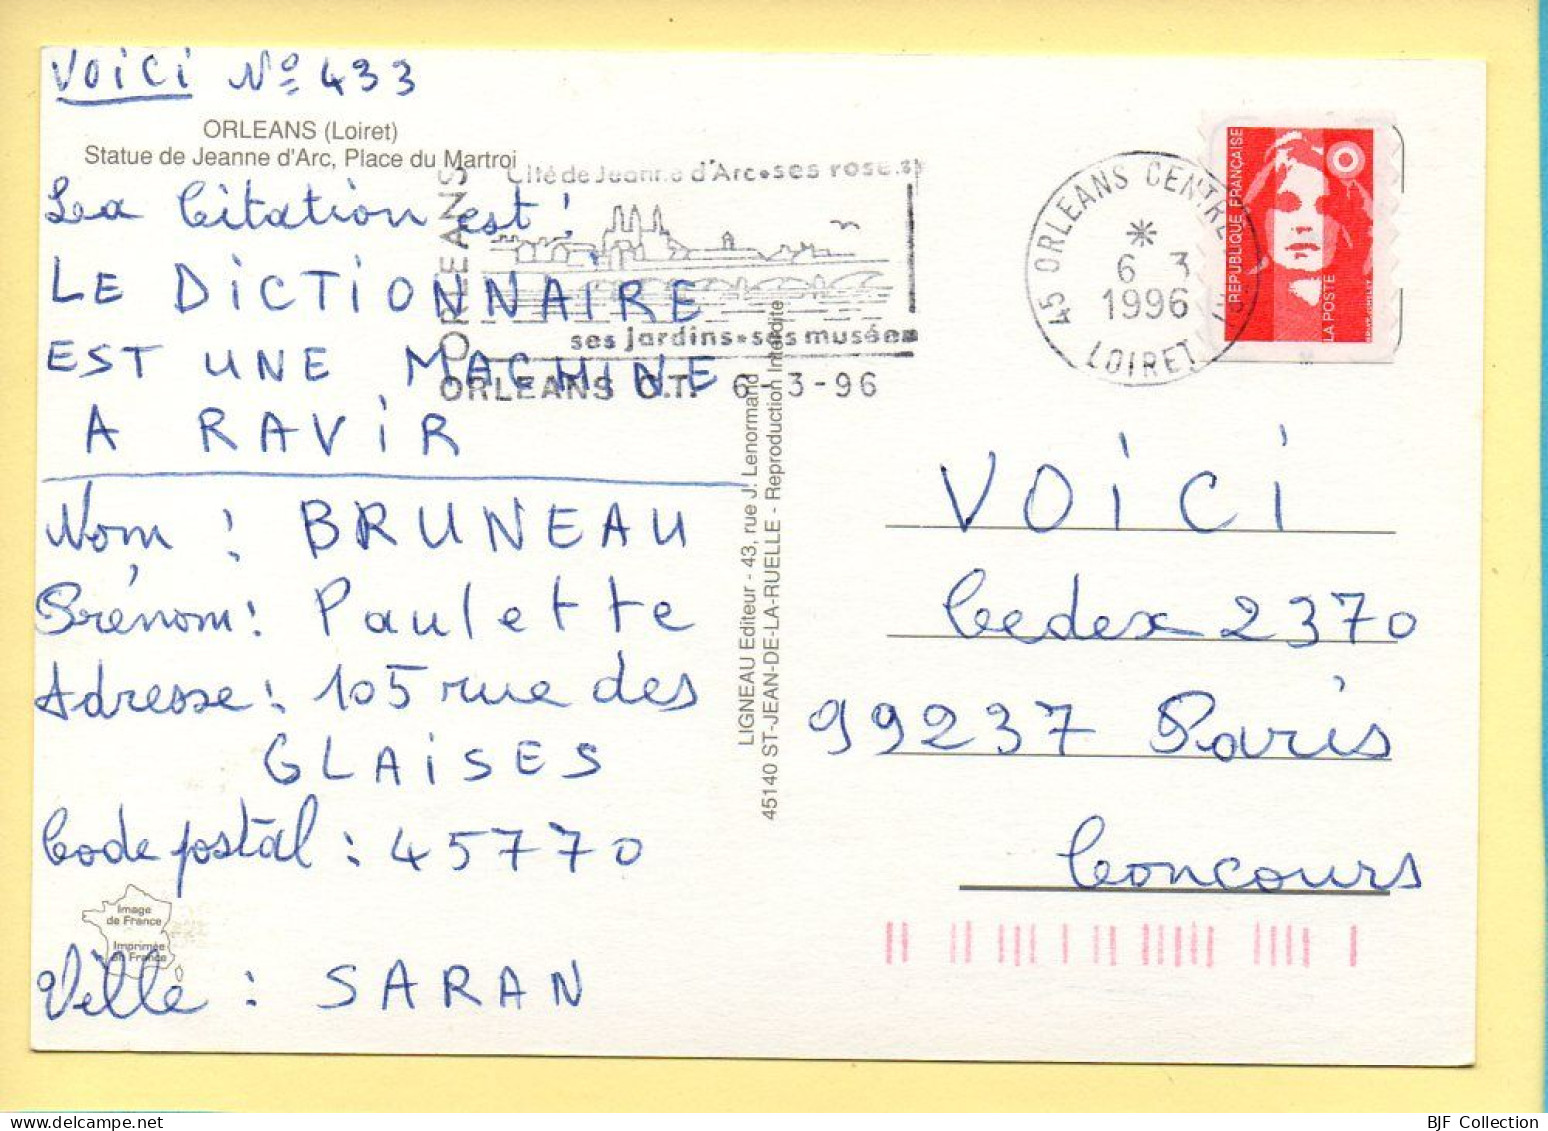 VOiCi Nº 433
ORLEANS (Loiret)
Statue de Jeanne d'Arc, Place du Martroi
La Citation est :
LE DiCTiONNAiRE
EST UNE MACHiNE
A RAViR
Nom : BRUNEAU
Prénom : Paulette
Adresse : 105 rue des
GLAiSES
Code postal : 45770
Ville : SARAN
Image
de France
Imprimée
en France
ORLEANS
Cité de Jeanne d'Arc • ses roses
ses jardins • ses musées
ORLEANS C.T. 6-3-96
LIGNEAU Editeur - 43, rue J. Lenormand
45140 ST-JEAN-DE-LA-RUELLE - Reproduction Interdite
45 ORLEANS CENTRE
*
6 3
1996
LOIRET
REPUBLIQUE FRANÇAISE
LA POSTE
VOiCi
Cedex 2370
99237 Paris
Concours
BJF Collection